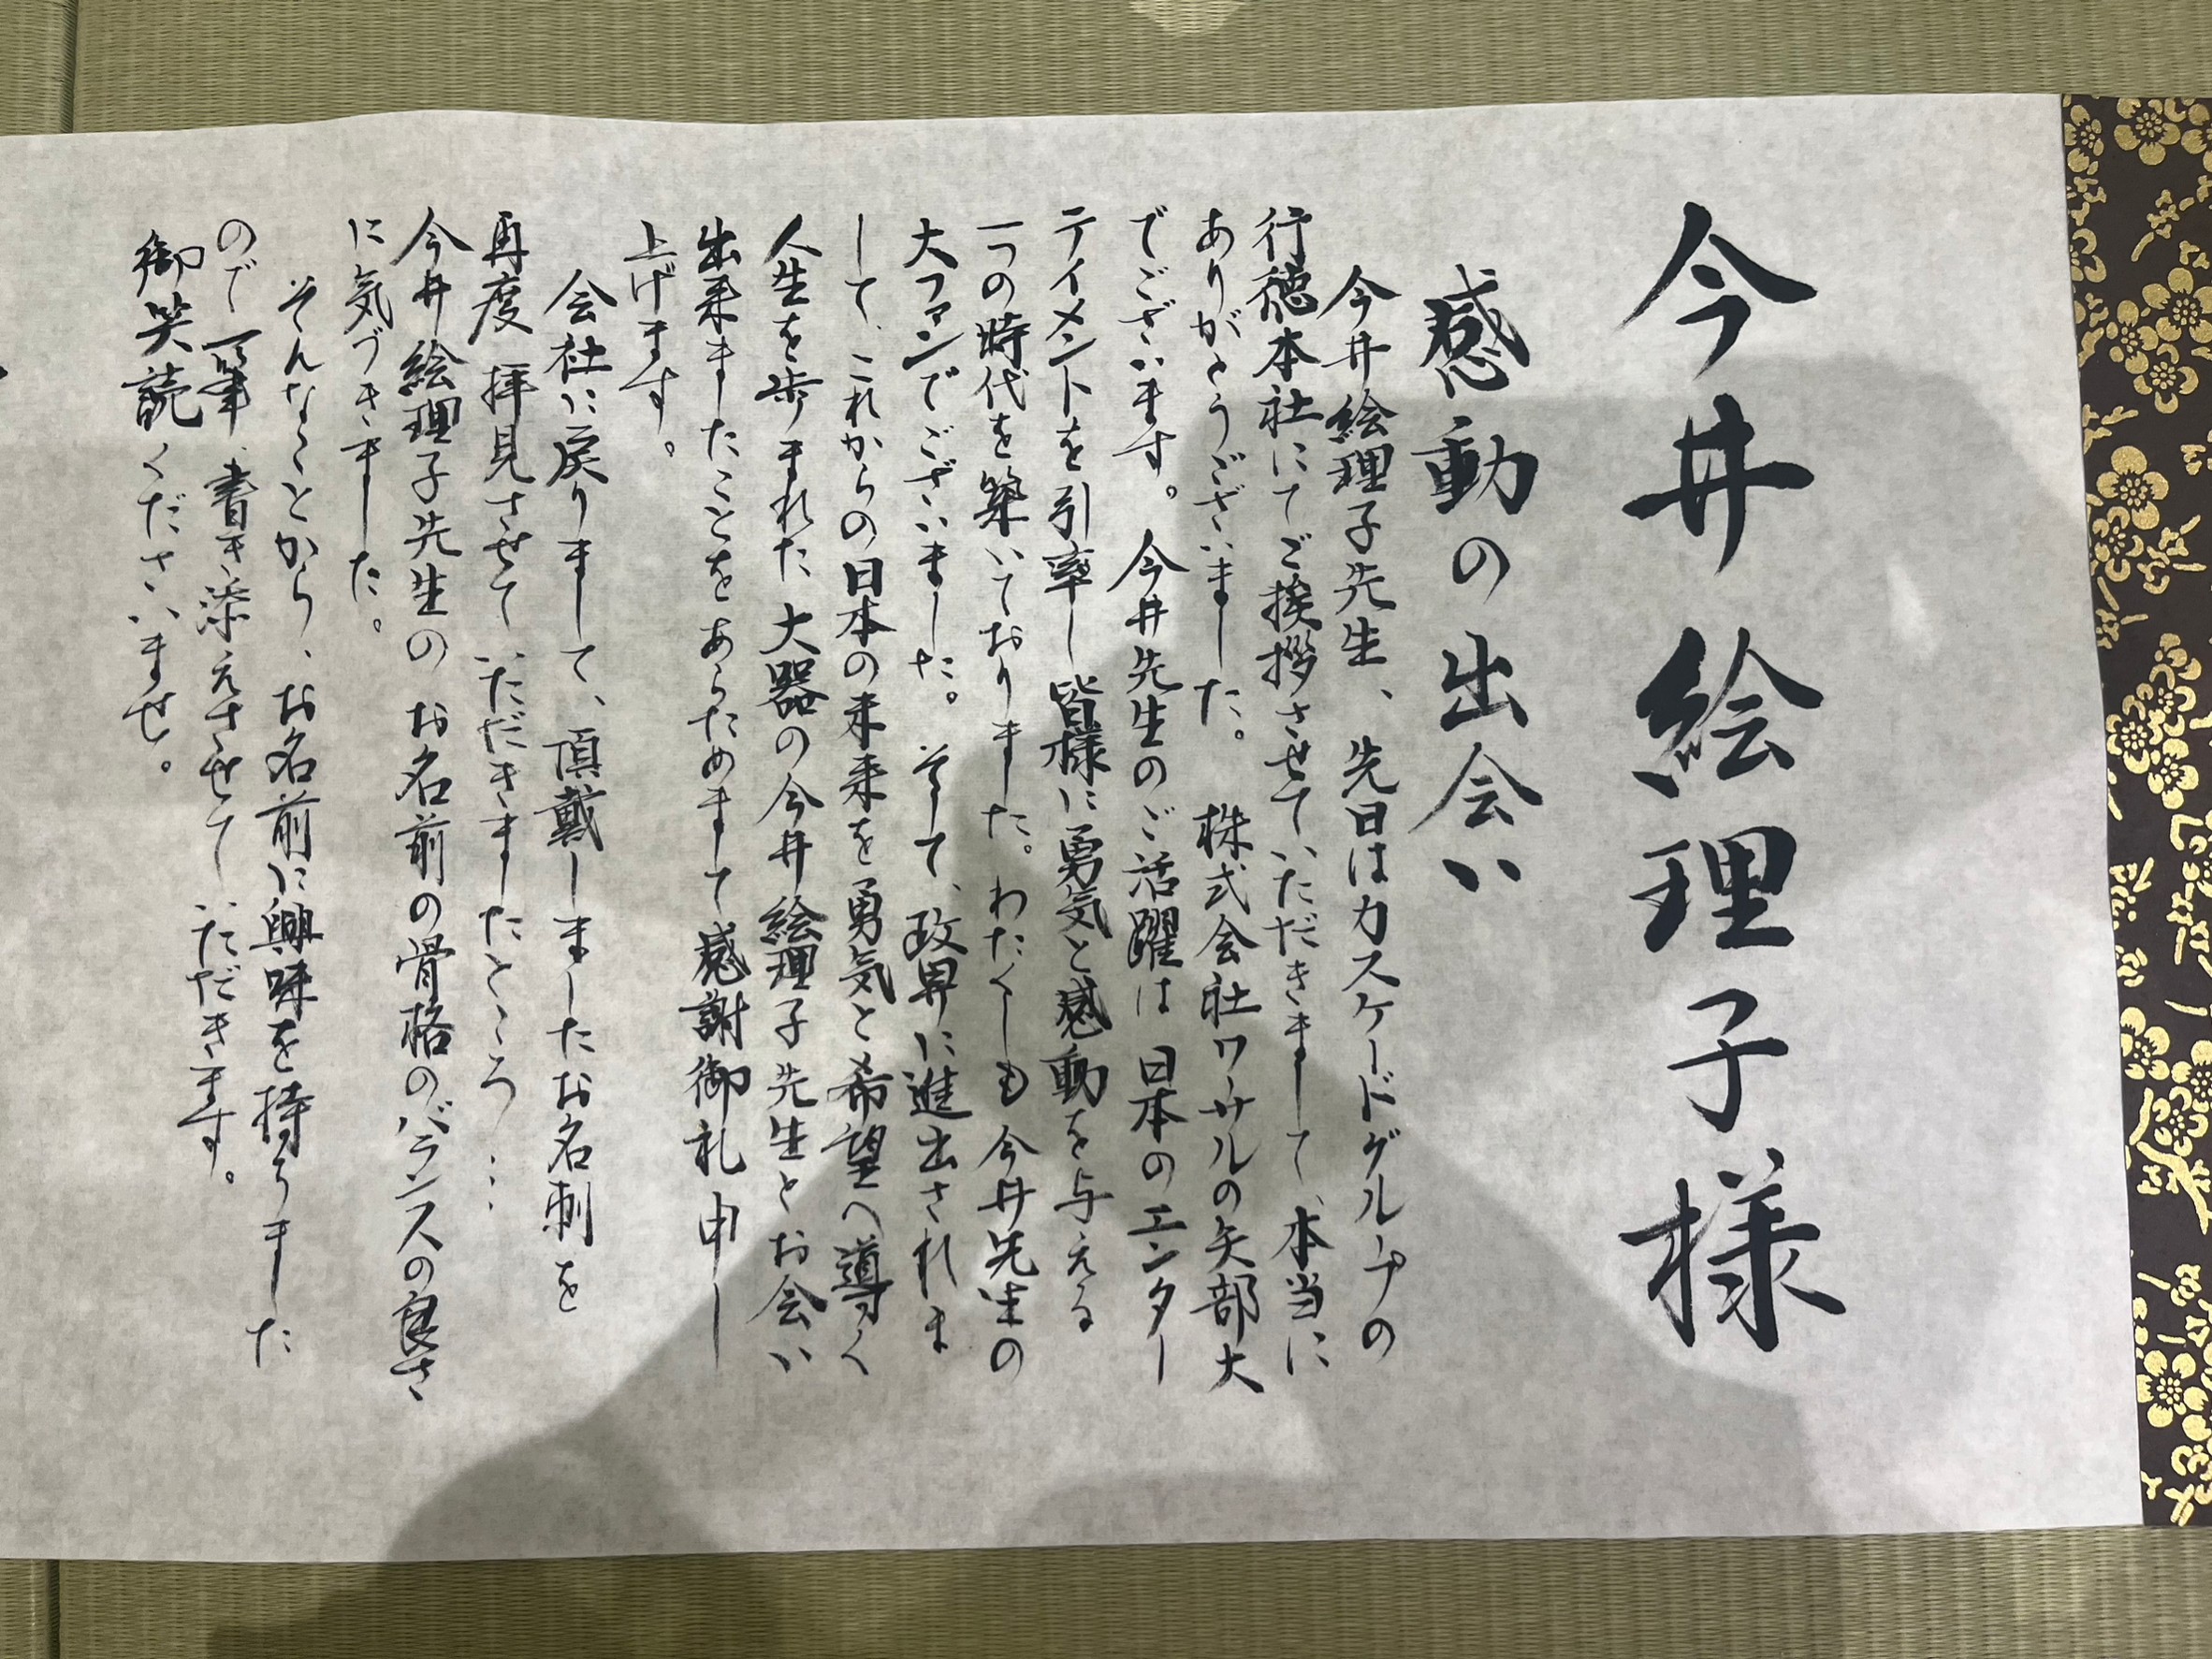 今井絵理子様
感動の出会い
今井絵理子先生、先日はカスケードグループの
行徳本社にてご挨拶させていただきまして、本当に
ありがとうございました。株式会社ワサルの矢部大
でございます。今井先生のご活躍は日本のエンター
テイメントを引率し皆様に勇気と感動を与える
一つの時代を築いておりました。わたくしも今井先生の
大ファンでございました。そして、政界に進出されま
して、これからの日本の未来を勇気と希望へ導く
人生を歩まれた大器の今井絵理子先生とお会い
出来ましたことをあらためまして感謝御礼申し
上げます。
会社に戻りまして、頂戴しましたお名刺を
再度拝見させていただきましたところ…
今井絵理子先生のお名前の骨格のバランスの良さ
に気づきました。
そんなことから、お名前に興味を持ちました
ので一筆、書き添えさせていただきます。
御笑読くださいませ。